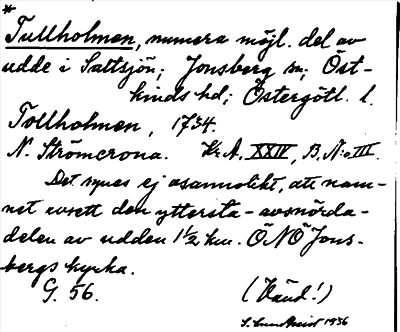 *
Tullholmen, numera möjl. del av
udde i Saltsjön; Jonsberg sn; Öst-
kinds hd; Östergötl. l.
Tollholmen, 1734.
N. Strömcrona. Kr. A. XXIV, B. No III.
Det synes ej osannolikt, att nam-
net avsett den yttersta-avsnörda-
delen av udden 1½ km. ÖNÖ Jons-
bergs kyrka.
G. 56. (Vänd!)
1936